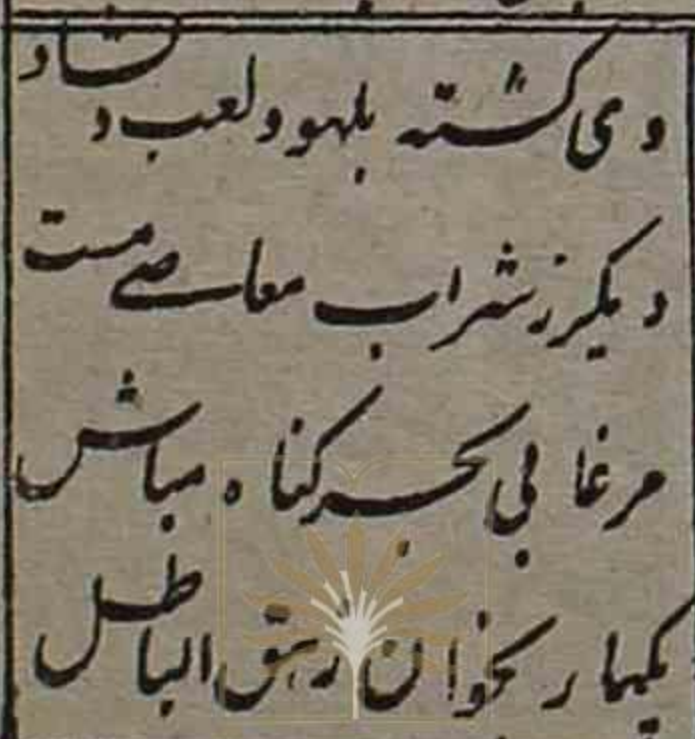 وی کشته بلهو و لعب دلشاد
دیکر ز شراب معاصی مست
مرغابی بحر کناه مباش
یکبار بخوان زهق الباطل